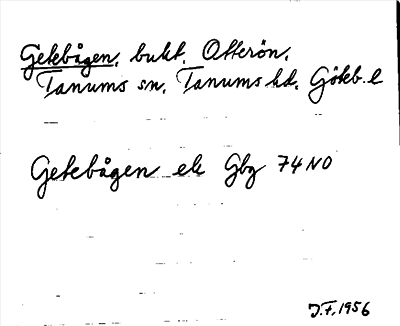 Getebågen, bukt, Otterön,
Tanums sn, Tanums hd, Göteb. l
Getebågen ek Gbg 74 NO
J.F. 1956